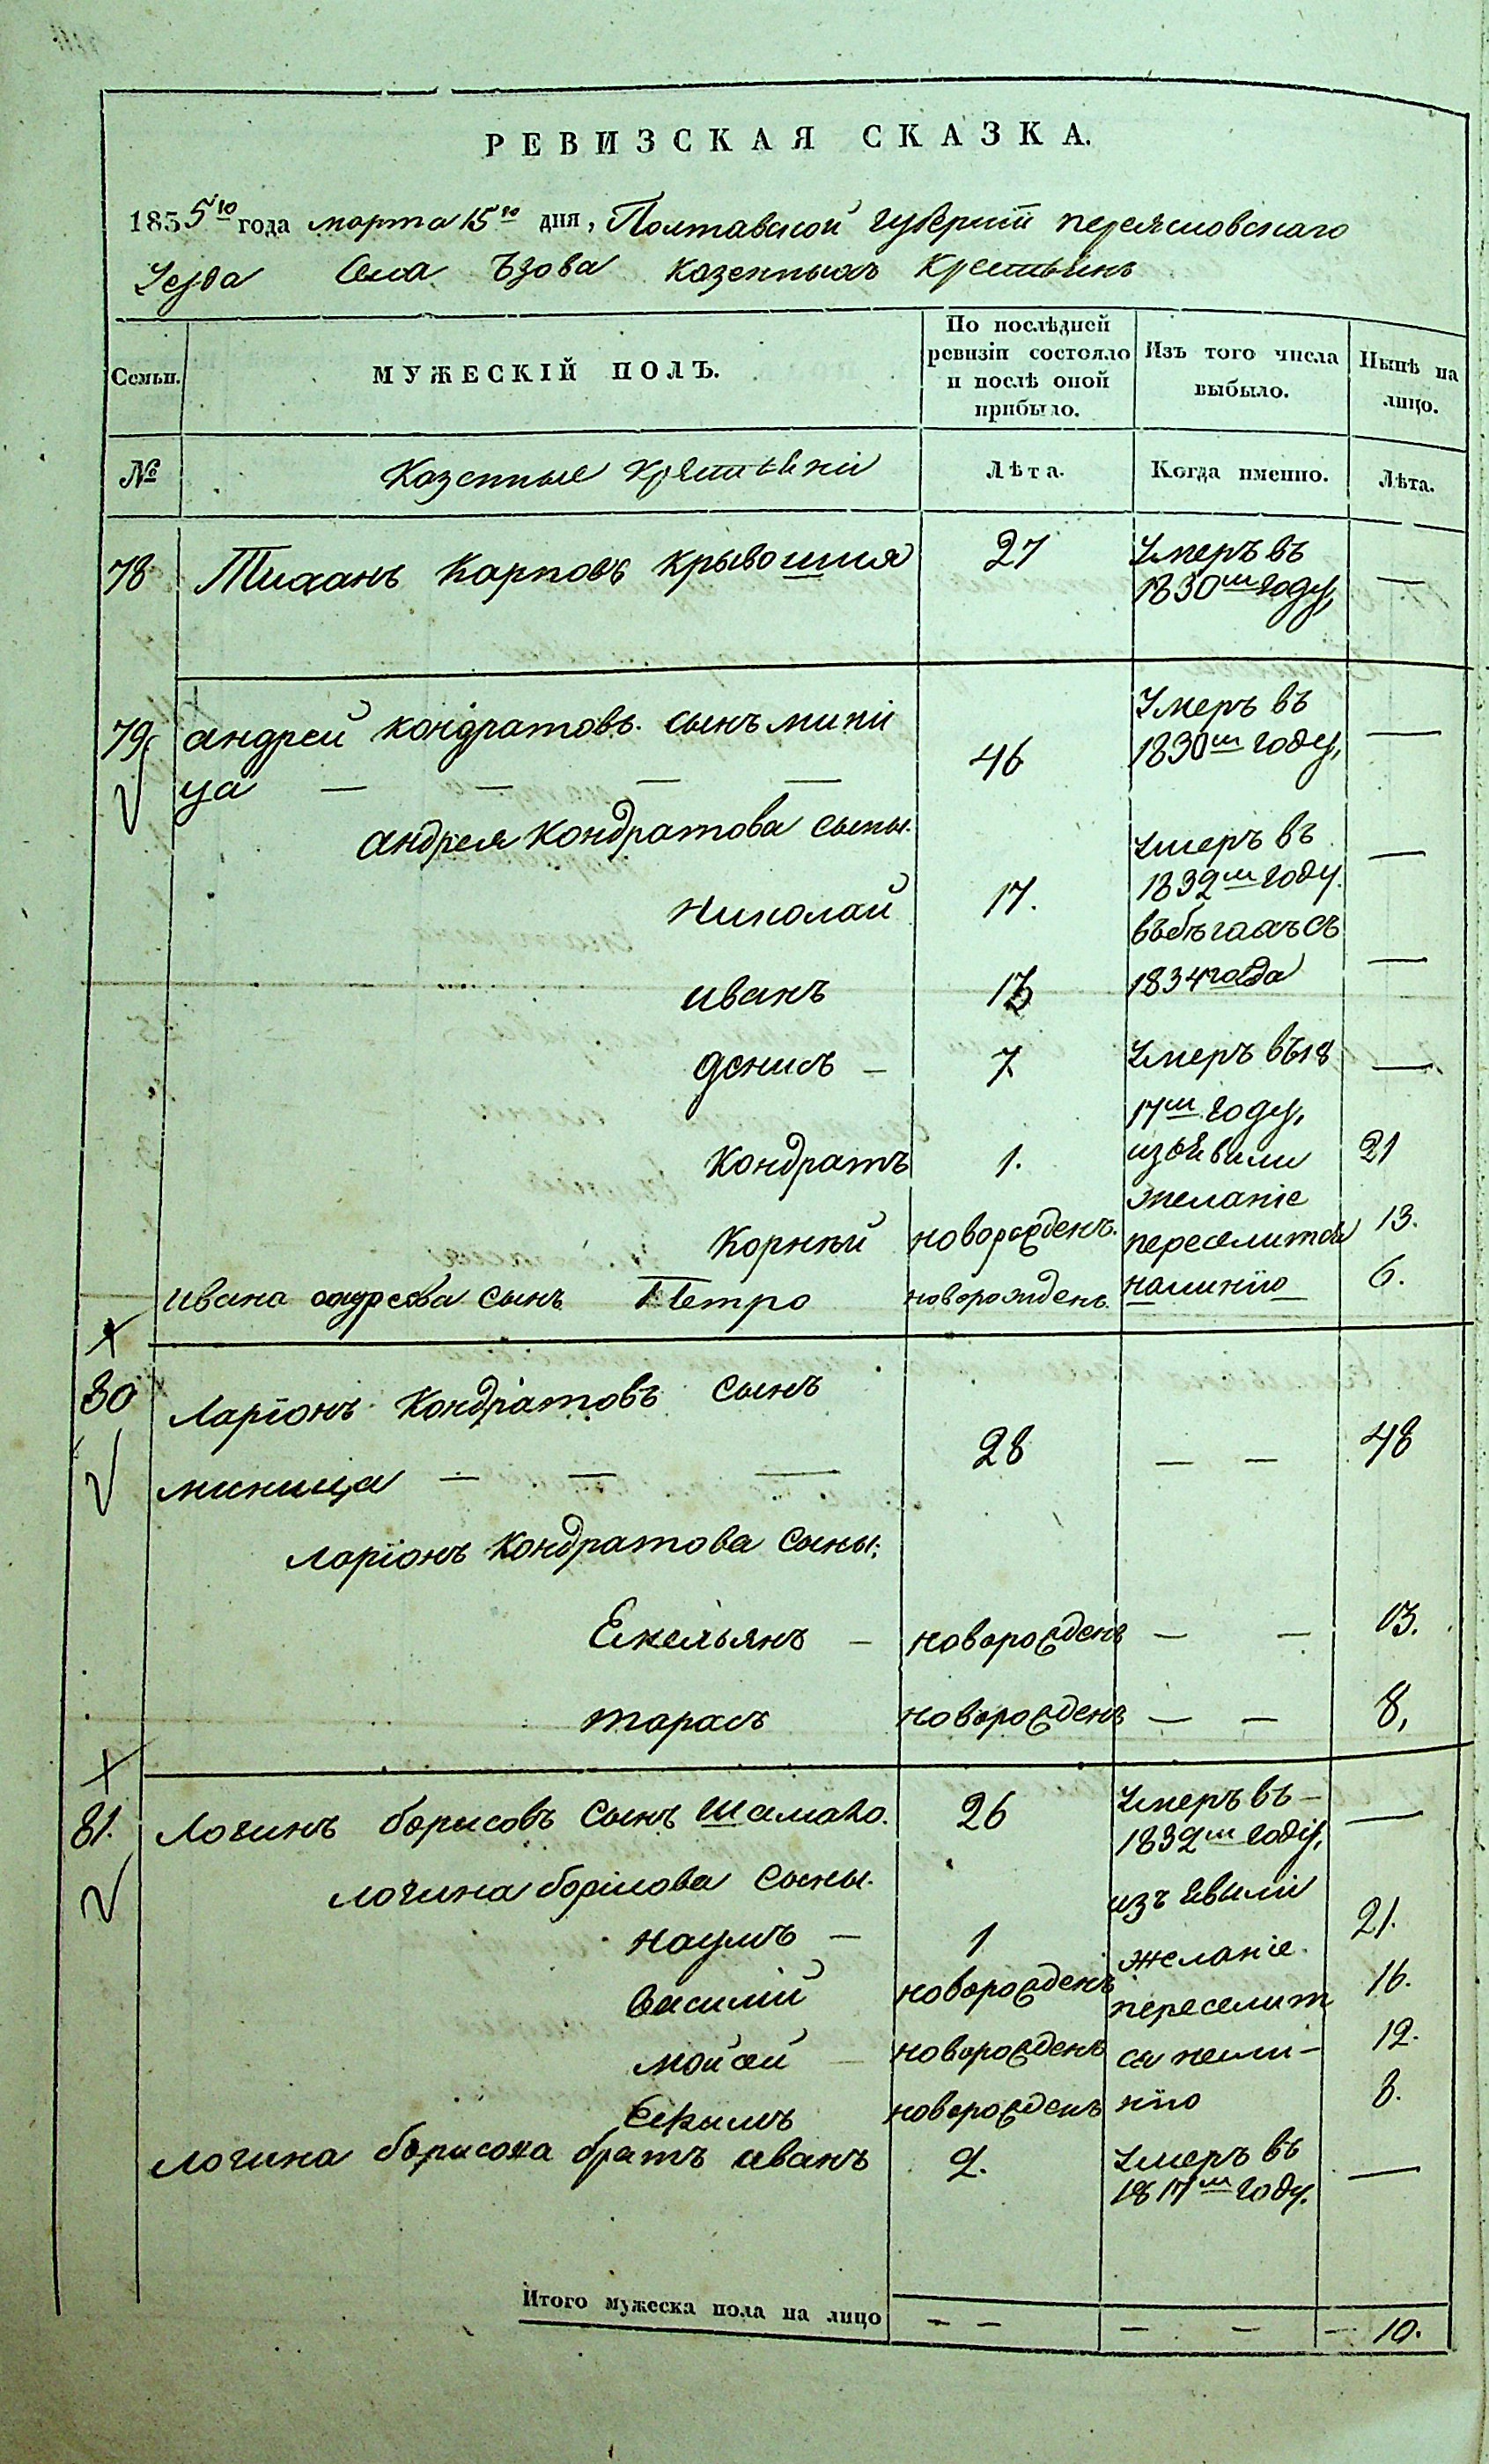 РЕВИЗСКАЯ СКАЗКА.
1835го года марта 15го дня, Полтавской губернии переясловскаго
Уезда Села Ѣзова казенныхъ крестьянъ
Семьи. МУЖЕСКІЙ ПОЛЪ. По послѣдней ревизіи состояло и послѣ оной прибыло. Изъ того числа выбыло. Нынѣ на лицо.
№ Казенные крестьяни Лѣта. Когда именно. Лѣта.
78 Тиханъ Карповъ Крывошия 27 Умеръ въ
1830м году, —
79 андрей кондратовъ сынъ мини Умеръ въ
ца — — — — 46 1830м году, —
андрея Кондратова сыны. Умеръ въ
Николай 17. 1832м году. —
въ бѣгахъ съ
иванъ 13 1834 года —
данилъ — 7 Умеръ въ 18 —
17м году,
Кондратъ 1. изъявили 21
желаніе
Корнѣй новорожденъ. переселитсь 13.
ивана андреева сынъ Петро новорожденъ. налинїю 6.
80 Ларіонъ Кондратовъ сынъ
миница — — — 28 — — 48
ларіонъ Кондратова сыны:
Емельянъ — новорожденъ — — 13.
тарасъ новорожденъ — — 8,
81. Логинъ борисовъ сынъ Шамало. 26 Умеръ въ —
1832м году, —
логина борисова сыны. изъявили
наумъ — 1 желаніе 21.
василій новорожденъ переселит 16.
мойсей — новорожденъ ся нали- 12.
новорожденъ нїю 8.
логина борисова братъ иванъ 2. Умеръ въ
1817м году. —
Итого мужеска пола на лицо — — — — — 10.